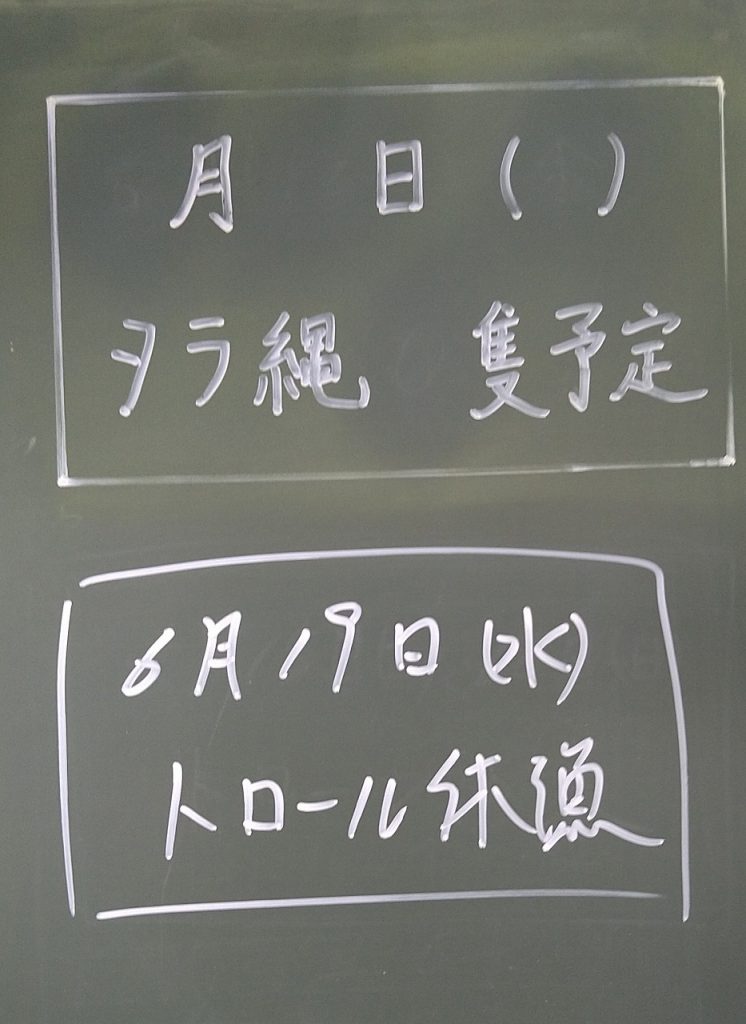 月 日 ( )
タラ縄 隻予定
6月19日(水)
トロール休漁